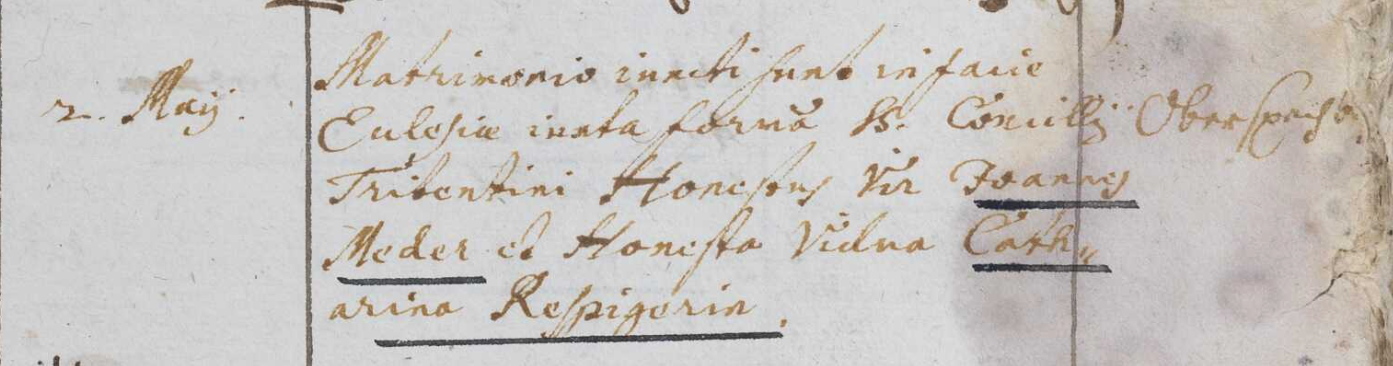 Matrimonio iuncti sunt in facie
2. Maÿ. Ecclesiæ iuxta formã SS. Concillÿ Oberspach
Tritentini Honestus Vir Joannes
Meder et Honesta Vidua Cath„
arina Respigerin.